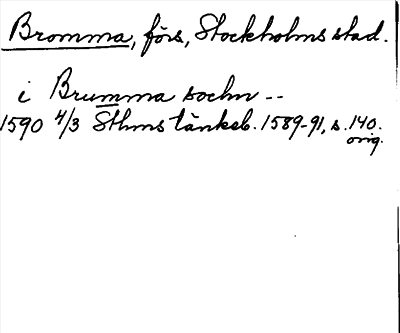 Bromma, förs, Stockholms stad.
i Brumma sochn --
1590 4/3 Sthms tänkeb. 1589-91, s. 140.
orig.